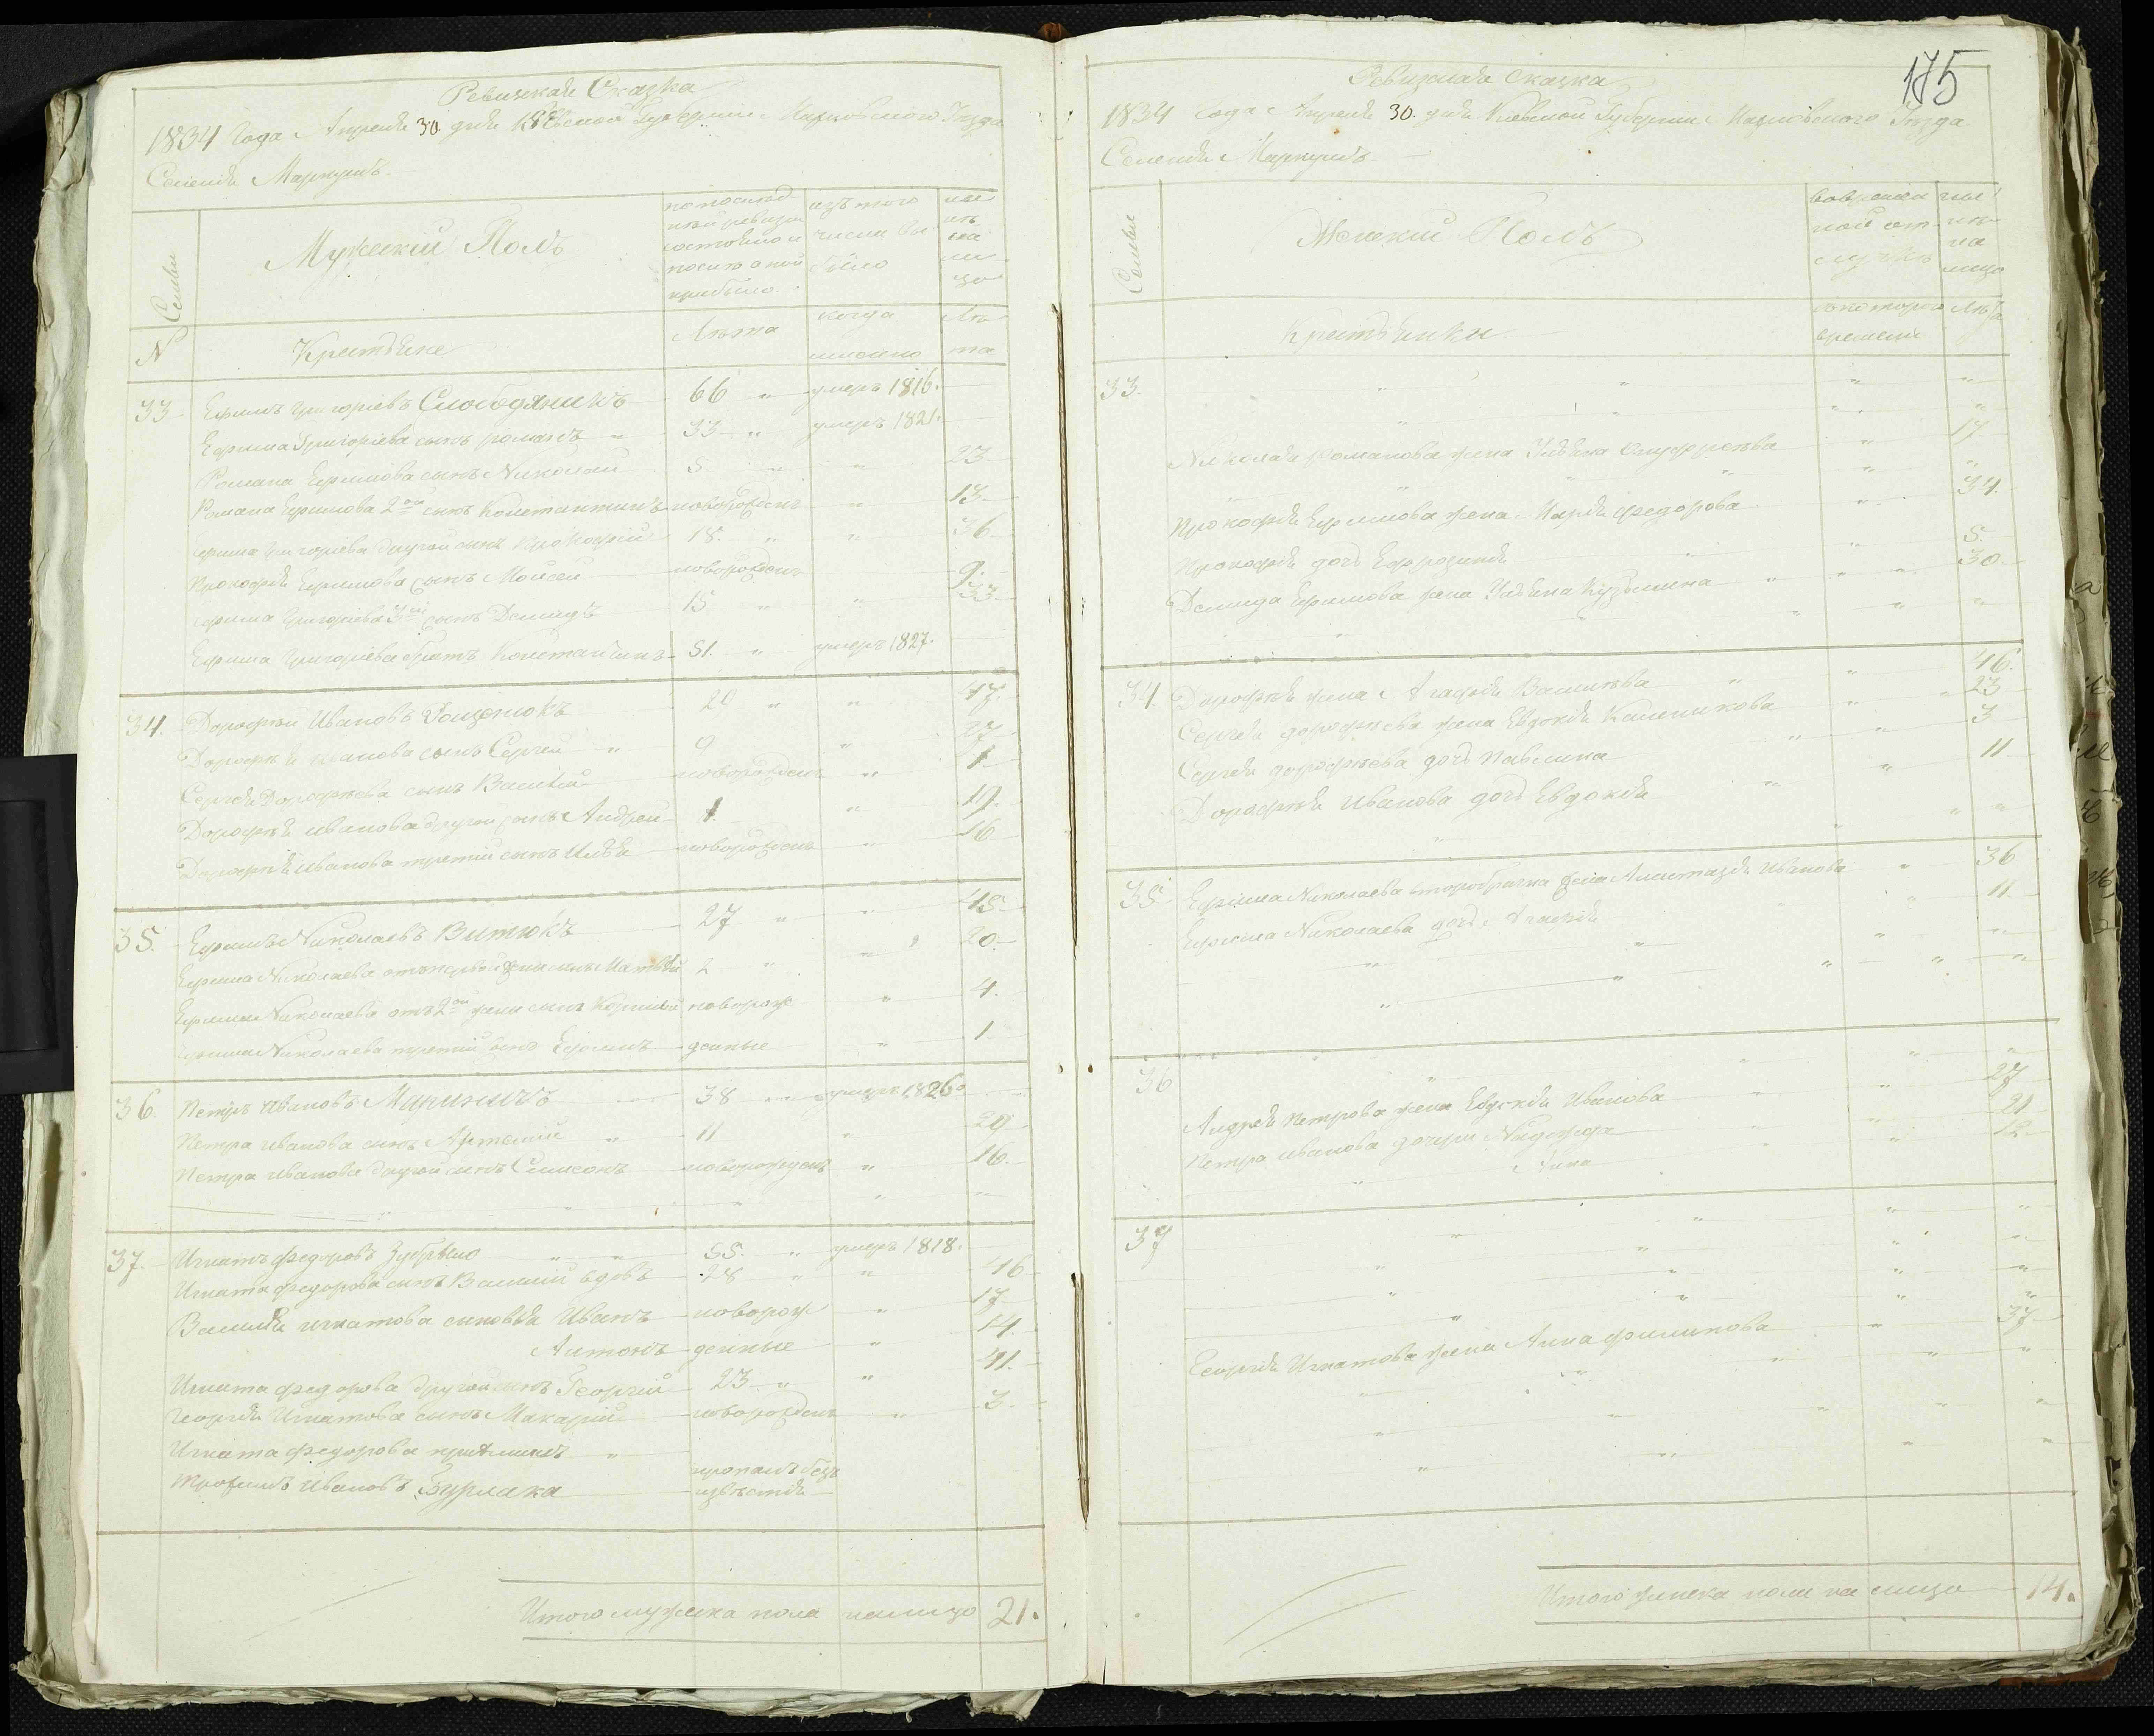 Ревизская Сказка
1834 Года Апреля 30 дня Киевской Губернии Уезда
Селения
Семьи
Мужеский Полъ
по последней ревизии состояло и после оной прибыло
изъ того числа выбыло
ныне на лицо
N
Крестьяне
Лѣта
когда именно
Лѣта
33 Ефимъ Григорiевъ Слободяникъ 66 " умеръ 1816.
Ефима Григорiева сынъ романъ " 33 " умеръ 1821.
Романа Ефимова сынъ Николай 5 " " 23
Романа Ефимова 2ой сынъ Константинъ новорожденъ " 13.
Ефима Григорiева другой сынъ Прокофiй 18. " " 36
Прокофiя Ефимова сынъ Моисей новорожденъ 9.
Ефима Григорiева 3й сынъ Демидъ 15 " " 33
Ефима Григорiева братъ Константинъ 51. " умеръ 1827.
34. Дорофей Ивановъ 29 " " 47.
Дорофея Иванова сынъ Сергей " 9 " 27
Сергея Дорофеева сынъ Василiй новорожденъ " 1
Дорофея иванова другой сынъ Андрей 1. " 19.
Дорофея иванова третiй сынъ Илья новорожденъ " 16
35. Ефимъ Николаевъ Витюкъ 27 " " 45
Ефима Николаева отъ первой жены сынъ Матвей 2 " " 20.
Ефима Николаева отъ 2ой жены сынъ новорож " 4.
Ефима Николаева третiй сынъ Ефимъ денные " 1
36. Петръ Ивановъ 38 умеръ 1826
Петра иванова сынъ Артемiй " 11 " 29
Петра иванова другой сынъ Самсонъ новорожденъ " 16.
37. Игнатъ федоровъ " " 55. " умеръ 1818.
Игната федорова сынъ Василiй вдовъ 28 " " 46
Василiя игнатова сыновья Иванъ новорож " 17
Антонъ денные " 14.
Игната федорова другой сынъ Георгiй 23 " " 41.
Георгiя Игнатова сынъ Макарiй новорожденъ " 3.
Игната федорова прiемышъ "
Трофимъ ивановъ Бурлака пропалъ безъ извѣстiя
Итого мужеска пола налицо 21.
175
Ревизская сказка
1834 года Апреля 30. дня Киевской Губернии Уезда
Селения
Семьи
Женский Полъ
во временной отлучкѣ
ныне на лицо
Крестьянки
съ котораго времени
Лѣта
33. " " " "
" " " "
Николая Романова жена Ульяна " 17
" " " "
Прокофiя Ефимова жена Марiя федорова " 34.
Прокофiя дочь Ефросинiя " 5.
Демида Ефимова жена Ульяна Кузьмина " " 30.
34. Дорофея жена Агафiя Васильева " " 46.
Сергея дорофеева жена Евдокiя " 23
Сергея дорофеева дочь Павлина " " 3
Дорофея Иванова дочь Евдокiя " 11
35 Ефима Николаева второбрачна жена Анастазiя Иванова " 36
Ефима Николаева дочь Агафiя " 11.
36 " " " "
Андрея Петрова жена Евдокiя Иванова " 27
Петра иванова дочери Надежда " 21
Анна " 12
37 " " " "
Георгiя Игнатова жена Анна филипова " 37
Итого женска пола на лицо 14.